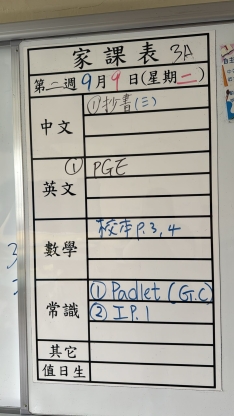 家課表 3A
第二週9月9日(星期一)
中文 ①抄書(三)
英文 ① PGE
數學 校本P.3,4
常識 ① Padlet (G.C)
② I P.1
其它
值日生